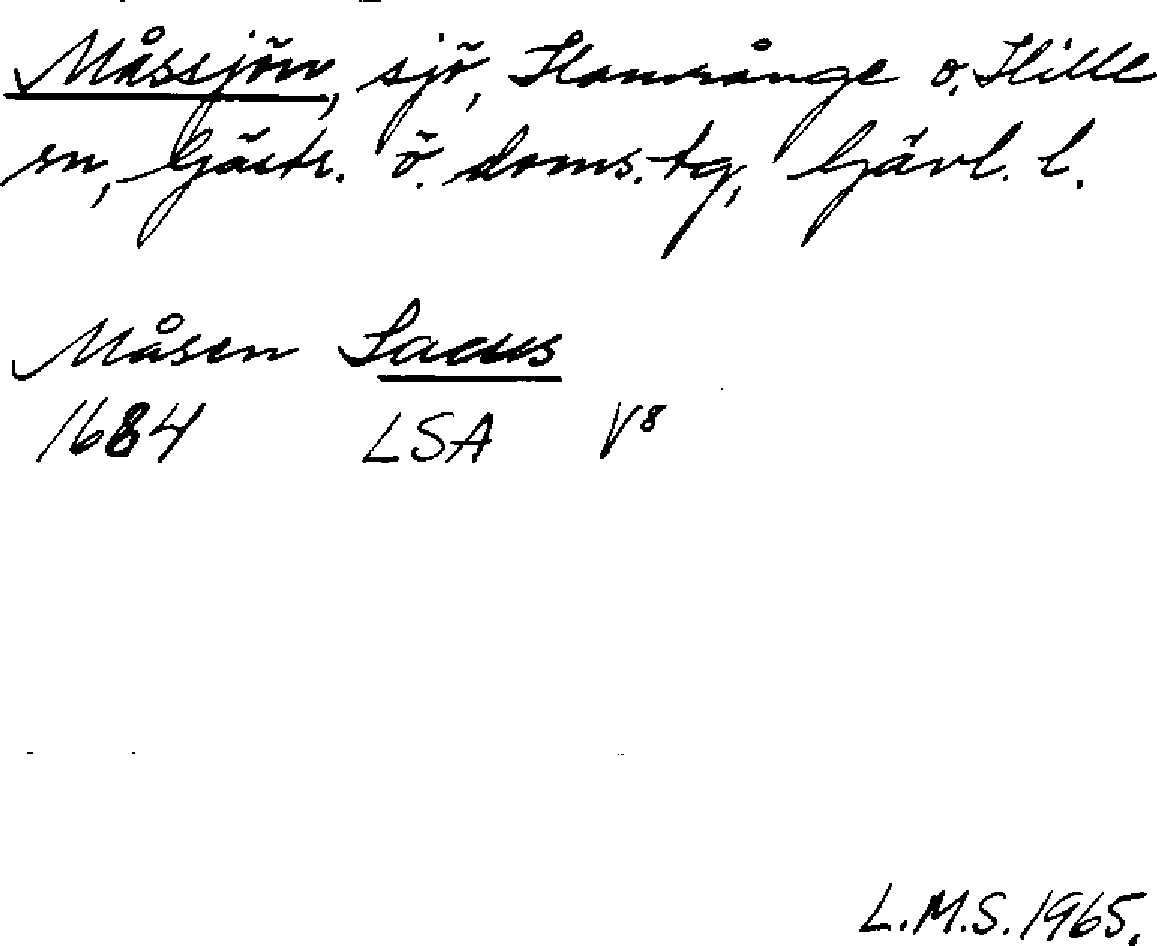 Måssjön, sjö, Hamrånge o. Hille
sn, Gästr. ö. doms.tg, Gävl. l.
Måsen Lacus
1684 LSA V8
L.M.S. 1965.